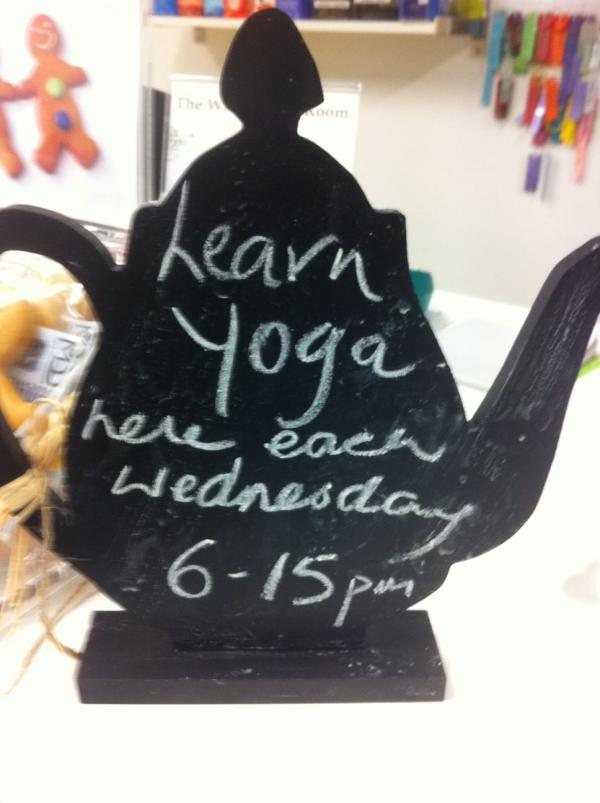 The W Room
Learn
Yoga
here each
Wednesday
6-15pm